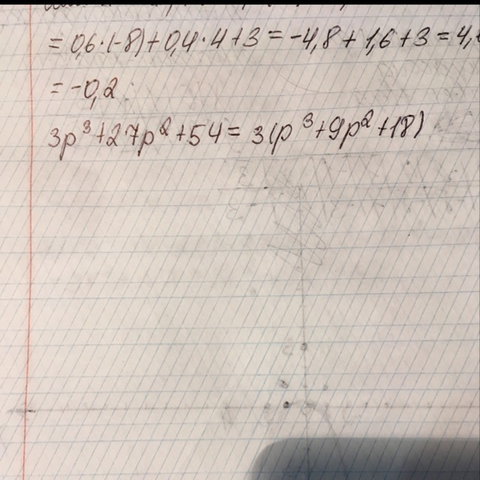 = 0,6·(-8)+0,4·4+3 = -4,8+1,6+3 = 4,
= -0,2
3p³+27p²+54 = 3(p³+9p²+18)